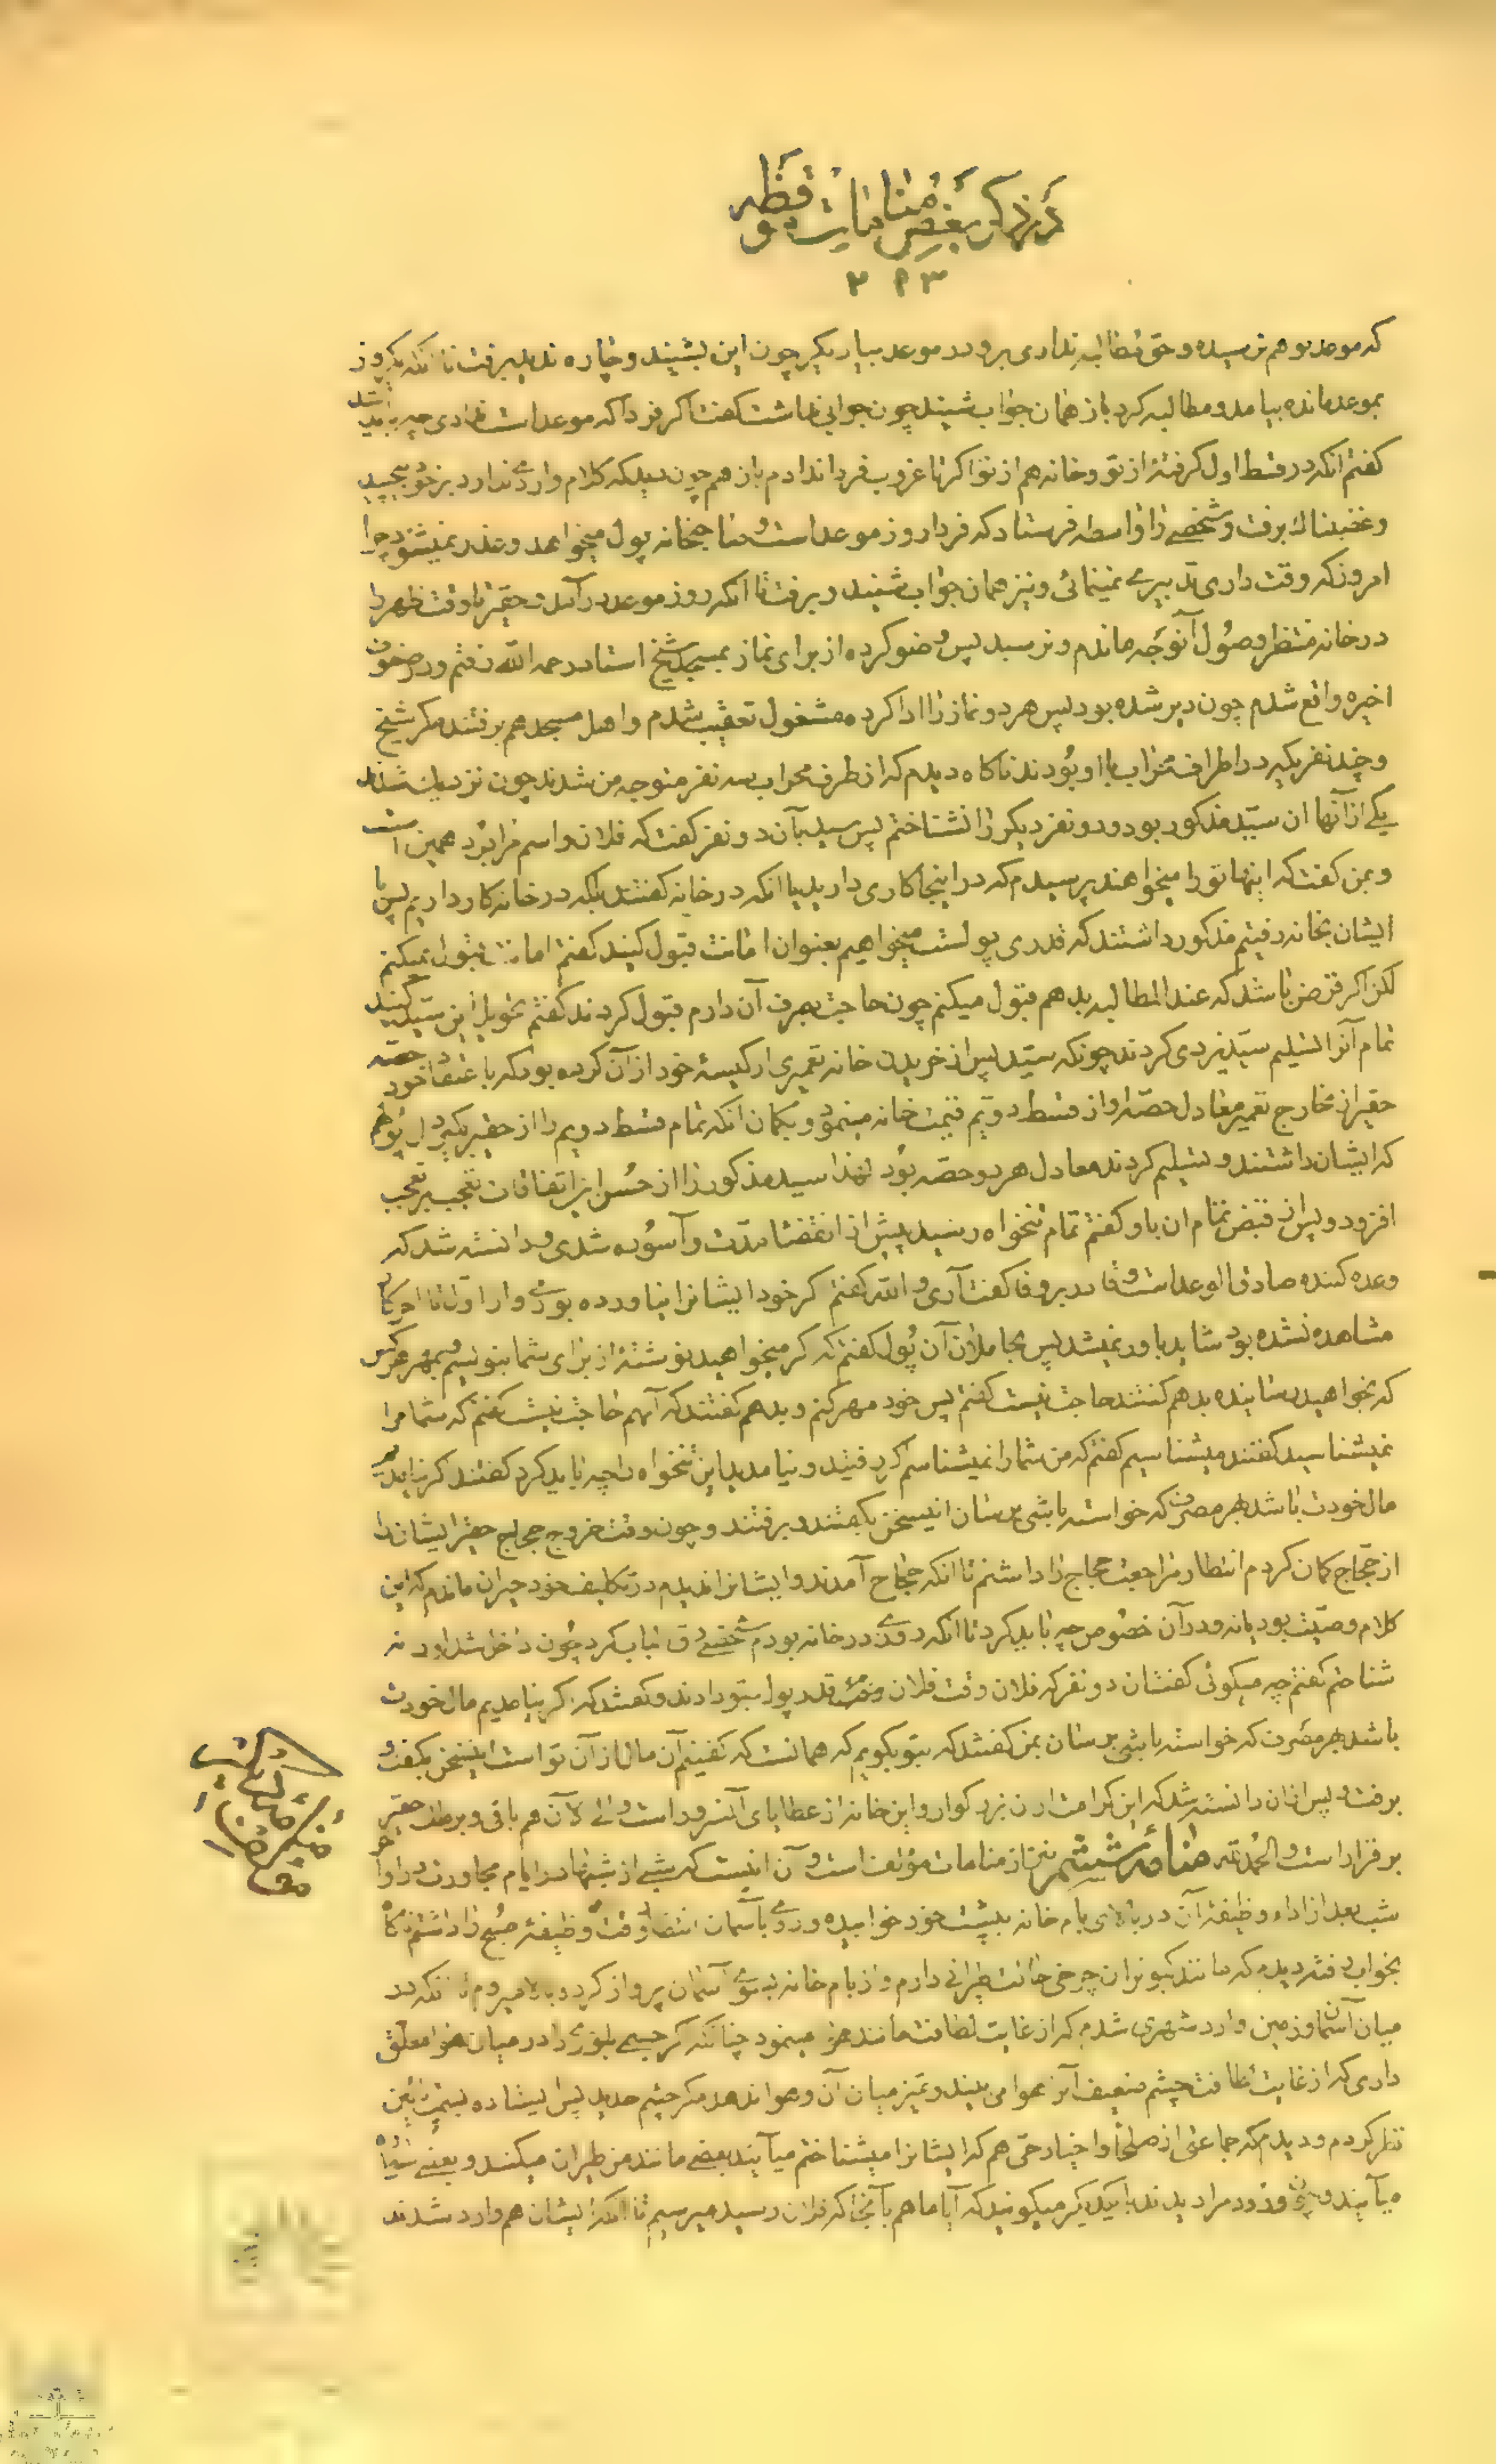 در ذکر بعض منامات موقظه
۲۹۳
که موعد هم نرسیده و حق مطالبه نداری برو در موعد بیا بگیر چون این بشنید و چاره ندید برفت تا آنکه یکروز
بموعد مانده بیامد و مطالبه کرد باز همان جواب شنید چون جوابی نداشت گفت اگر فردا که موعد است ندادی چه باید
کفتم آنکه در قسط اول گرفتهٔ از تو و خانه هم از تو اگر تا غروب فردا ندادم باز هم چون دید که کلام وارد ندارد بر خود پیچید
و غضبناک برفت و شخصی را واسطه فرستاد که فردا روز موعد است و صاحبخانه پول میخواهد و عذر نمیشنود چرا
امروز که وقت داری تدبیری نمینمائی و نیز همان جواب شنید و برفت تا آنکه روز موعد در آمد و حقیر تا وقت ظهر را
در خانه منتظر وصول آنوجه ماندم و نرسید پس وضو کرده از برای نماز بمسجد شیخ استاد رحمه الله رفتم و در صفوف
اخیره واقع شدم چون دیر شده بود پس هر دو نماز را ادا کرده مشغول تعقیب شدم و اهل مسجد هم برفتند مگر شیخ
و چند نفر دیگر که در اطراف محراب با او بودند ناگاه دیدم که از طرف محراب سه نفر متوجه من شدند چون نزدیک شدند
یکی از آنها ان سید مذکور بود و دو نفر دیگر را نشناختم پس سید بآن دو نفر گفت که فلان و اسم مرا برد همین است
و بمن گفت که اینها تو را میخواهند پرسیدم که در اینجا کاری دارید یا آنکه در خانه گفتند بلکه در خانه کار داریم پس با
ایشان بخانه رفتیم مذکور داشتند که قدری پول است میخواهیم بعنوان امانت قبول کنید گفتم امانت قبول نمیکنم
لکن اگر قرض باشد که عند المطالبه بدهم قبول میکنم چون حاجت بصرف آن دارم قبول کردند گفتم تحویل این سید کنید
تمام آنرا تسلیم سید یزدی کردند چونکه سید پس از خریدن خانه تعمیری از کیسهٔ خود از آن کرده بود که باعتقاد خود حصه
حقیر از مخارج تعمیر معادل حصه او از قسط دویم قیمت خانه مینمود و بگمان آنکه تمام قسط دویم را از حقیر بگیرد پول هم
که ایشان داشتند و تسلیم کردند معادل هر دو حصه بود لهذا سید مذکور را از حسن این اتفاقات تعجب بر تعجب
افزود و پس از قبض تمام ان باو گفتم تمام تنخواه رسید پیش از انقضا مدت و آسوده شدی و دانسته شد که
وعده کننده صادق الوعد است و قادر بر وفا گفت آری والله گفتم اگر خود ایشانرا نیاورده بودی و از اول تا آخر کار
مشاهده نشده بود شاید باور نمیشد پس بحاملان آن پول گفتم که اگر میخواهید نوشتهٔ از برای شما بنویسم و بمهر هر کس
که بخواهید رسانیده بدهم گفتند حاجت نیست گفتم پس خود مهر کنم و بدهم گفتند که آنهم حاجت نیست گفتم که شما مرا
نمیشناسید گفتند میشناسیم گفتم که من شما را نمیشناسم اگر رفتید و نیامدید این تنخواه را چه باید کرد گفتند اگر نیامدیم
مال خودت باشد بهر مصرف که خواسته باشی برسان اینسخن بگفتند و برفتند و چون وقت خروج حجاج حقیر ایشانرا
از حجاج گمان کردم انتظار مراجعت حجاج را داشتم تا آنکه حجاج آمدند و ایشانرا ندیدم در تکلیف خود حیران ماندم که این
کلام وصیت بود یا نه و در آن خصوص چه باید کرد تا آنکه روزی در خانه بودم شخصی دق الباب کرد چون داخل شد او را نه
شناختم گفتم چه میگوئی گفت ان دو نفر که فلان وقت فلان قدر پول بتو دادند و گفتند که اگر نیامدیم مال خودت
باشد بهر مصرف که خواسته باشی برسان بمن گفتند که بتو بگویم که همانست که گفتیم آن مال از آن تو است اینسخن بگفت و
برفت و پس از ان دانسته شد که این کرامت از ان بزرگوار و این خانه از عطایای آنسرور است و الی الآن هم باقی و بر ملک حقیر
برقرار است و الحمد لله منامه ششم نیز از منامات مؤلف است و آن اینست که شبی از شبها در ایام مجاورت در اواخر
شب بعد از اداء وظیفهٔ آن در بالای بام خانه بپشت خود خوابیده و روی بآسمان انتظار وقت وظیفهٔ صبح را داشتم ناگاه
بخواب رفته دیدم که مانند کبوتران چرخی حالت طیرانی دارم و از بام خانه بسوی آسمان پرواز کرده بالا میروم تا آنکه در
میان آسمان و زمین وارد شهری شدم که از غایت لطافت مانند هوا مینمود چنانکه اگر جسمی بلوری را در میان هوا معلق
داری که از غایت لطافت چشم ضعیف آنرا هوا می بیند و تمیز میان آن و هوا ندهد مگر چشم حدید پس ایستاده بسمت پائین
نظر کردم و دیدم که جماعتی از صلحا و اخیار حتی هم که ایشانرا میشناختم میآیند بعضی مانند من طیران میکنند و بعضی پیاده
میآیند و چون از دور مرا دیدند با یکدیگر میگویند که آیا ما هم بآنجا که فلان رسید میرسیم تا آنکه ایشان هم وارد شدند